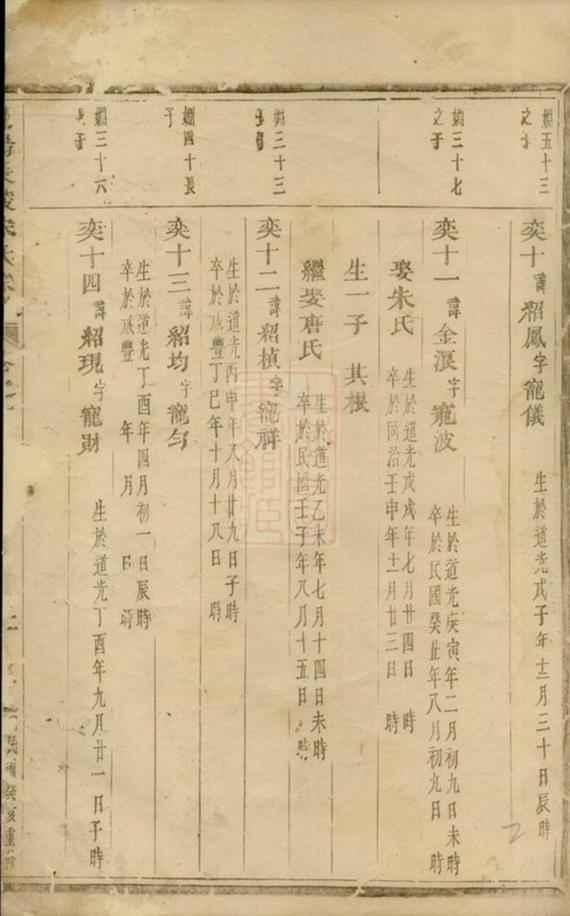 五十三
之子
奕十諱紹鳳字寵儀
生於道光戊子年十二月三十日辰時
三十七
之子
奕十一諱金浪字寵波
生於道光庚寅年二月初九日未時
卒於民國癸丑年八月初九日 時
娶朱氏
生於道光戊戌年七月廿四日 時
卒於同治壬申年十一月廿三日 時
生一子 其根
繼娶唐氏
生於道光乙未年七月十四日未時
卒於民國壬子年八月十五日 時
三十三
奕十二諱紹楨字寵祥
生於道光丙申年八月廿九日子時
卒於咸豐丁巳年十月十八日 時
四十長
子
奕十三諱紹均字寵勻
生於道光丁酉年四月初一日辰時
卒於咸豐 年 月 日 時
三十六
長子
奕十四諱紹現字寵財
生於道光丁酉年九月廿一日子時
民國癸亥重修